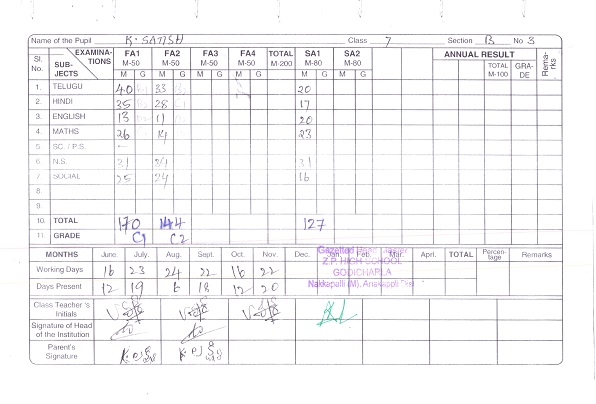 Name of the Pupil K. SATISH Class 7 Section B No 3
Sl. No. EXAMINATIONS SUBJECTS FA1 M-50 FA2 M-50 FA3 M-50 FA4 M-50 TOTAL M-200 SA1 M-80 SA2 M-80 ANNUAL RESULT Remarks
M G M G M G M G M G M G TOTAL M-100 GRADE
1. TELUGU 40 33 20
2. HINDI 35 28 17
3. ENGLISH 13 11 20
4. MATHS 26 14 23
5. SC. / P.S.
6. N.S. 31 34 31
7. SOCIAL 25 24 16
8.
9.
10. TOTAL 170 144 127
11. GRADE C1 C2
MONTHS June. July. Aug. Sept. Oct. Nov. Dec. Jan. Feb. Mar. April. TOTAL Percentage Remarks
Working Days 16 23 24 22 16 22
Days Present 12 19 6 18 12 20
Gazetted Head Master
Z.P. HIGH SCHOOL
GODICHARLA
Nakkapalli (M), Anakapalli Dist
Class Teacher's Initials
Signature of Head of the Institution
Parent's Signature